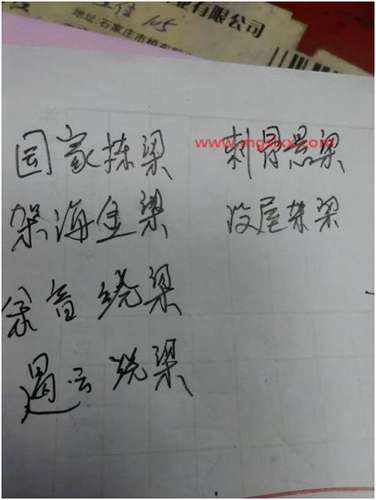 业有限公司
地址:石家庄市桥东
国家栋梁 刺骨悬梁
架海金梁 没屋架梁
余音绕梁
遏云绕梁